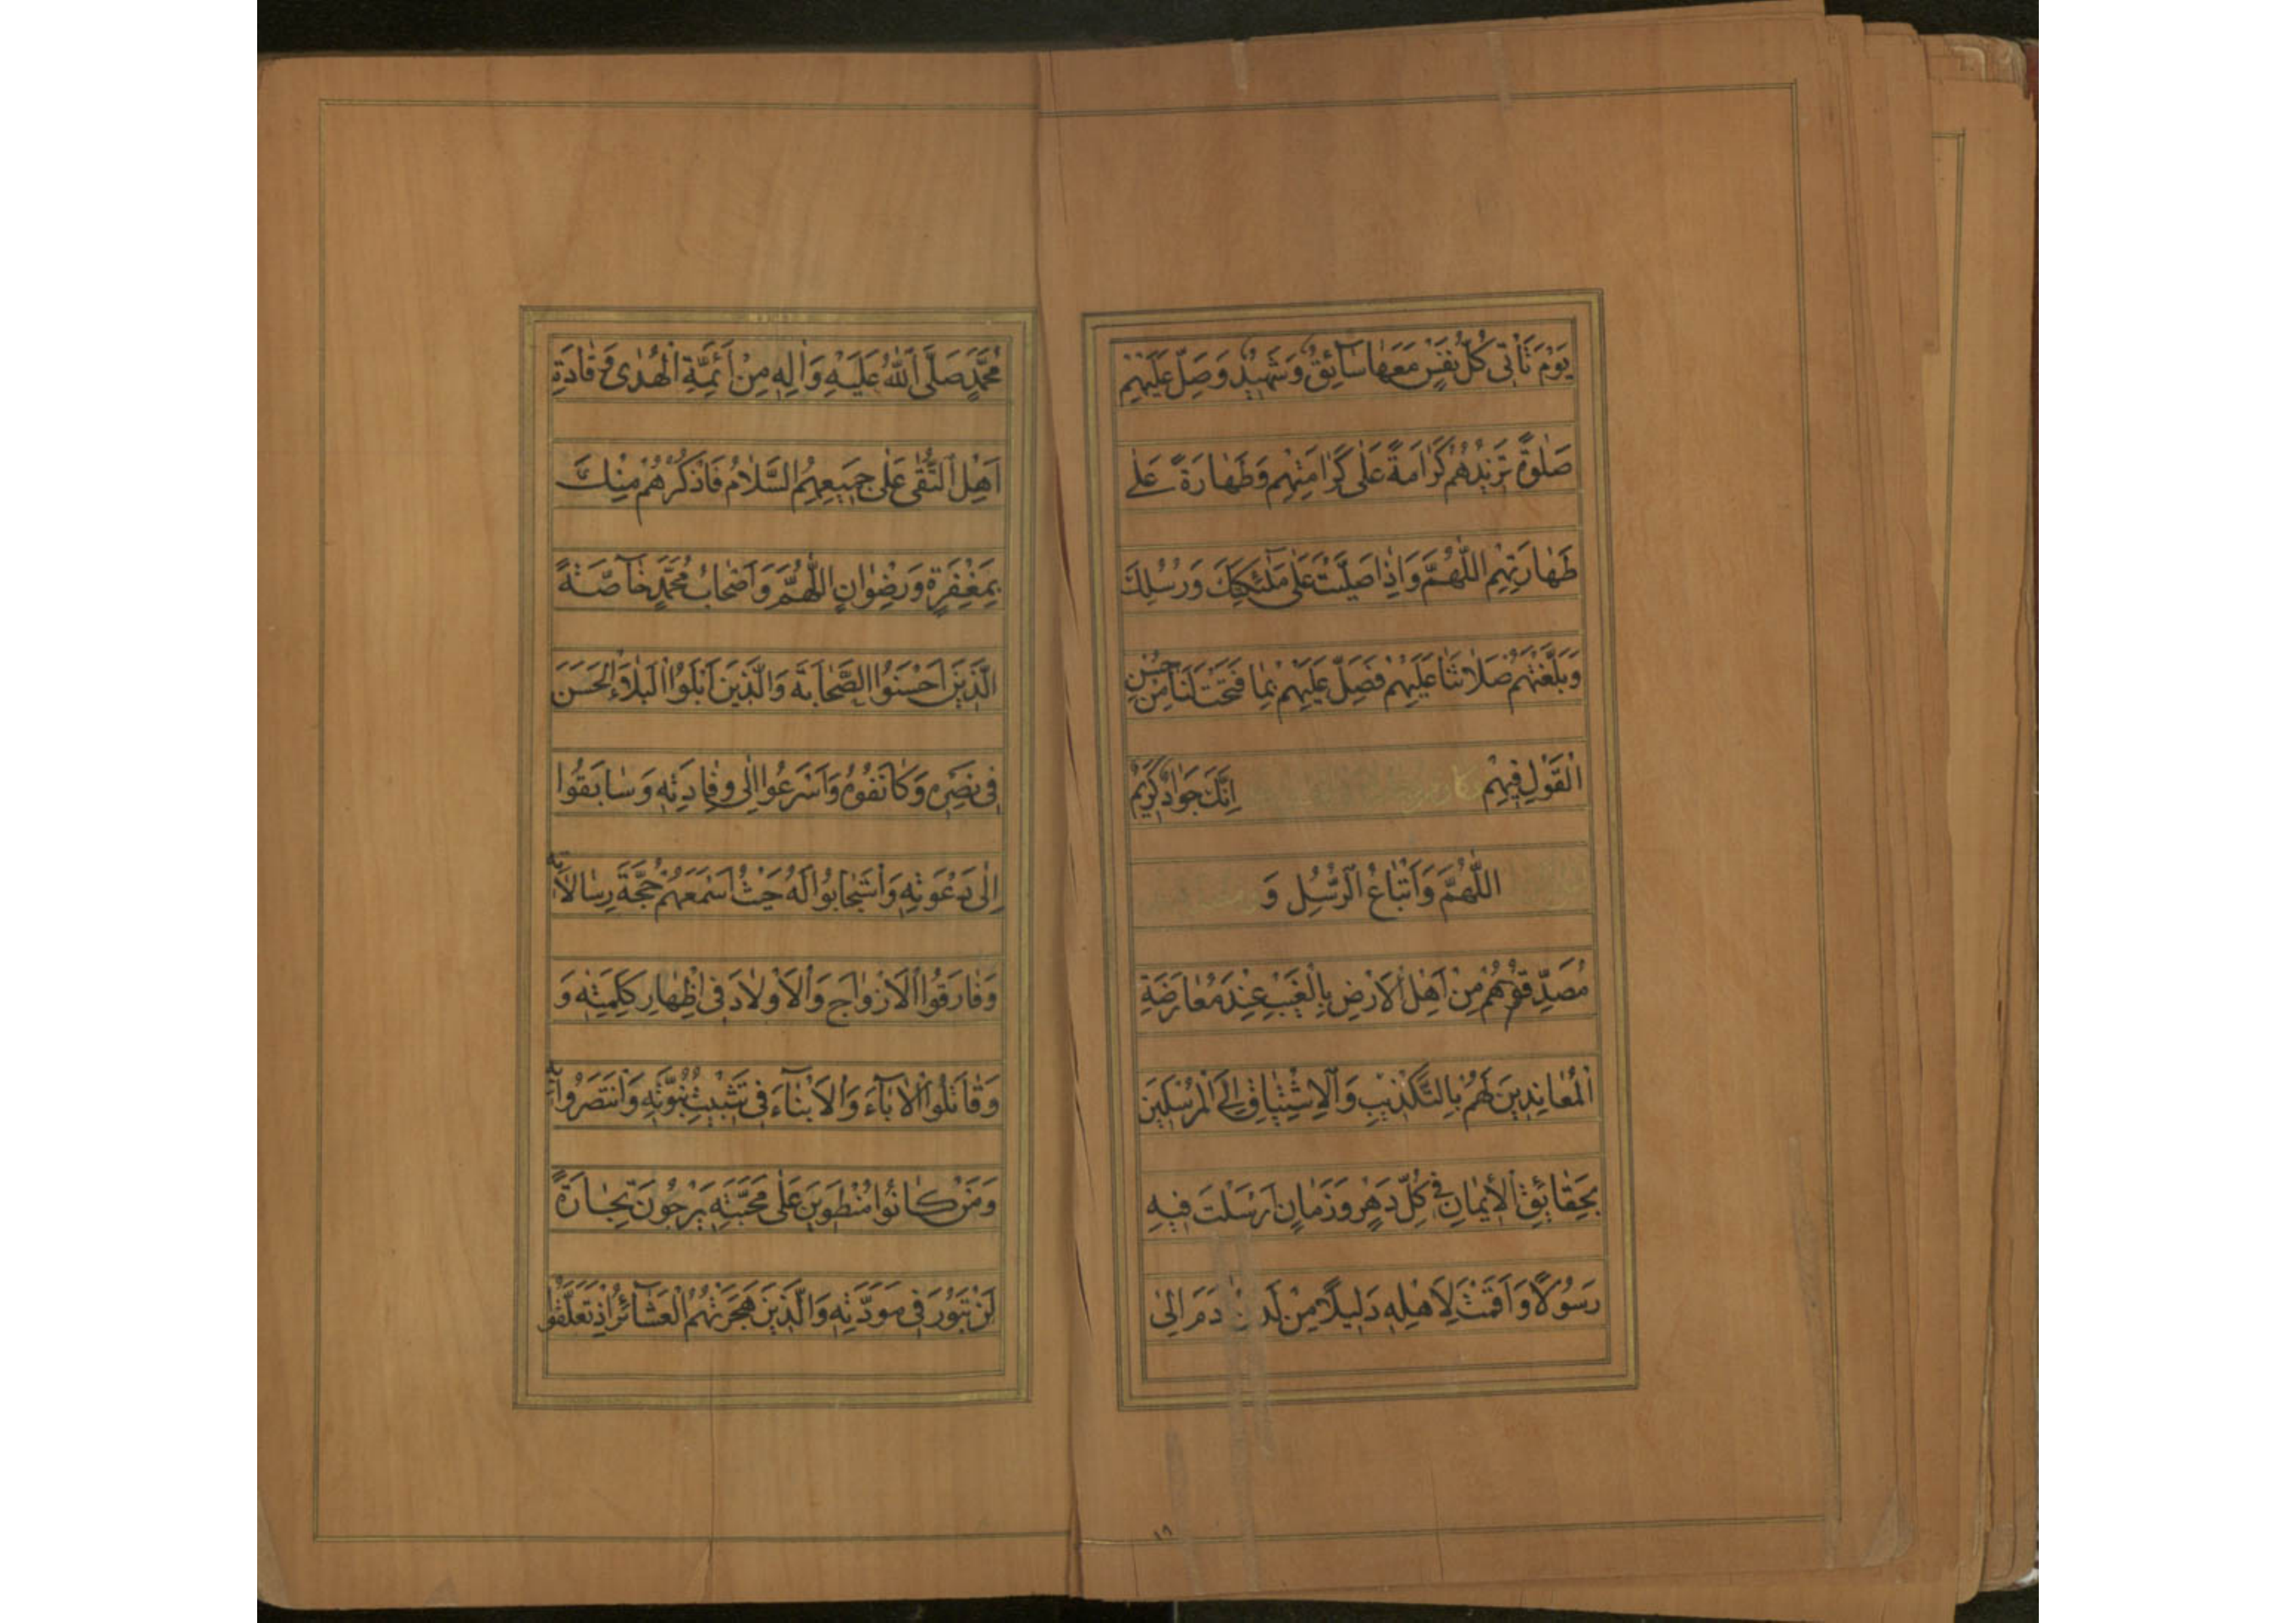 يَوْمَ تَأْتِي كُلُّ نَفْسٍ مَعَهَا سَآئِقٌ وَشَهِيدٌ وَصَلِّ عَلَيْهِمْ
صَلٰوةً تَزِيدُهُمْ كَرَامَةً عَلٰى كَرَامَتِهِمْ وَطَهَارَةً عَلٰى
طَهَارَتِهِمْ اللّٰهُمَّ وَاِذَا صَلَّيْتَ عَلٰى مَلٰٓئِكَتِكَ وَرُسُلِكَ
وَبَلَّغْتَهُمْ صَلَاتَنَا عَلَيْهِمْ فَصَلِّ عَلَيْهِمْ بِمَا فَتَحْتَ لَنَا مِنْ حُسْنِ
الْقَوْلِ فِيهِمْ اِنَّكَ جَوَادٌ كَرِيمٌ
اللّٰهُمَّ وَاَتْبَاعُ الرُّسُلِ وَ
مُصَدِّقُوهُمْ مِنْ اَهْلِ الْاَرْضِ بِالْغَيْبِ عِنْدَ مُعَارَضَةِ
الْمُعَانِدِينَ لَهُمْ بِالتَّكْذِيبِ وَالْاِشْتِيَاقِ اِلَى الْمُرْسَلِينَ
بِحَقَائِقِ الْاِيمَانِ فِي كُلِّ دَهْرٍ وَزَمَانٍ اَرْسَلْتَ فِيهِ
رَسُولًا وَاَقَمْتَ لِاَهْلِهِ دَلِيلًا مِنْ لَدُنْ دَمَ اِلٰى
١٨
مُحَمَّدٍ صَلَّى اللّٰهُ عَلَيْهِ وَاٰلِهِ مِنْ اَئِمَّةِ الْهُدٰى وَقَادَةِ
اَهْلِ التُّقٰى عَلٰى جَمِيعِهِمُ السَّلَامُ فَاذْكُرْهُمْ مِنْكَ
بِمَغْفِرَةٍ وَرِضْوَانٍ اللّٰهُمَّ وَاَصْحَابُ مُحَمَّدٍ خَآصَّةً
الَّذِينَ اَحْسَنُوا الصَّحَابَةَ وَالَّذِينَ اَبْلَوُا الْبَلَاءَ الْحَسَنَ
فِي نَصْرِهِ وَكَانَفُوهُ وَاَسْرَعُوا اِلٰى وِفَادَتِهِ وَسَابَقُوا
اِلٰى دَعْوَتِهِ وَاسْتَجَابُوا لَهُ حَيْثُ اَسْمَعَهُمْ حُجَّةَ رِسَالَاتِهِ
وَفَارَقُوا الْاَزْوَاجَ وَالْاَوْلَادَ فِي اِظْهَارِ كَلِمَتِهِ وَ
وَقَاتَلُوا الْاٰبَآءَ وَالْاَبْنَآءَ فِي تَثْبِيتِ نُبُوَّتِهِ وَانْتَصَرُوا بِهِ
وَمَنْ كَانُوا مُنْطَوِينَ عَلٰى مَحَبَّتِهِ يَرْجُونَ تِجَارَةً
لَنْ تَبُورَ فِي مَوَدَّتِهِ وَالَّذِينَ هَجَرَتْهُمُ الْعَشَآئِرُ اِذْ تَعَلَّقُوا